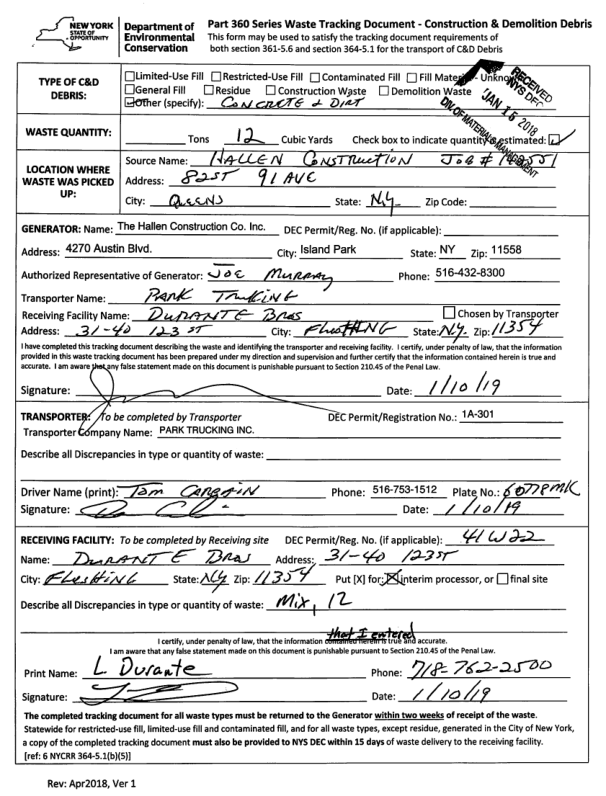 NEW YORK STATE OF OPPORTUNITY
Department of Environmental Conservation
Part 360 Series Waste Tracking Document - Construction & Demolition Debris
This form may be used to satisfy the tracking document requirements of
both section 361-5.6 and section 364-5.1 for the transport of C&D Debris
RECEIVED
NYS DEC
JAN 15 2018
DIV. OF MATERIALS MANAGEMENT
TYPE OF C&D DEBRIS:
Limited-Use Fill Restricted-Use Fill Contaminated Fill Fill Material - Unknown
General Fill Residue Construction Waste Demolition Waste
Other (specify): CONCRETE & DIRT
WASTE QUANTITY: Tons 12 Cubic Yards Check box to indicate quantity is estimated:
LOCATION WHERE WASTE WAS PICKED UP:
Source Name: HALLEN CONSTRUCTION JOB #
Address: 82ST 91 AVE
City: QUEENS State: N.Y. Zip Code:
GENERATOR: Name: The Hallen Construction Co. Inc. DEC Permit/Reg. No. (if applicable):
Address: 4270 Austin Blvd. City: Island Park State: NY Zip: 11558
Authorized Representative of Generator: JOE MURRAY Phone: 516-432-8300
Transporter Name: PARK TRUKING
Receiving Facility Name: DURANTE BROS Chosen by Transporter
Address: 31-40 123 ST City: FLUSHING State: N.Y. Zip: 11354
I have completed this tracking document describing the waste and identifying the transporter and receiving facility. I certify, under penalty of law, that the information
provided in this waste tracking document has been prepared under my direction and supervision and further certify that the information contained herein is true and
accurate. I am aware that any false statement made on this document is punishable pursuant to Section 210.45 of the Penal Law.
Signature: Date: 1/10/19
TRANSPORTER: To be completed by Transporter DEC Permit/Registration No.: 1A-301
Transporter Company Name: PARK TRUCKING INC.
Describe all Discrepancies in type or quantity of waste:
Driver Name (print): Tom Phone: 516-753-1512 Plate No.: 60778MK
Signature: Date: 1/10/19
RECEIVING FACILITY: To be completed by Receiving site DEC Permit/Reg. No. (if applicable): 41W22
Name: DURANTE BROS Address: 31-40 123ST
City: FLUSHING State: NY Zip: 11354 Put [X] for: interim processor, or final site
Describe all Discrepancies in type or quantity of waste: Mix, 12
that I entered
I certify, under penalty of law, that the information contained herein is true and accurate.
I am aware that any false statement made on this document is punishable pursuant to Section 210.45 of the Penal Law.
Print Name: L. Durante Phone: 718-762-2500
Signature: Date: 1/10/19
The completed tracking document for all waste types must be returned to the Generator within two weeks of receipt of the waste.
Statewide for restricted-use fill, limited-use fill and contaminated fill, and for all waste types, except residue, generated in the City of New York,
a copy of the completed tracking document must also be provided to NYS DEC within 15 days of waste delivery to the receiving facility.
[ref: 6 NYCRR 364-5.1(b)(5)]
Rev: Apr2018, Ver 1